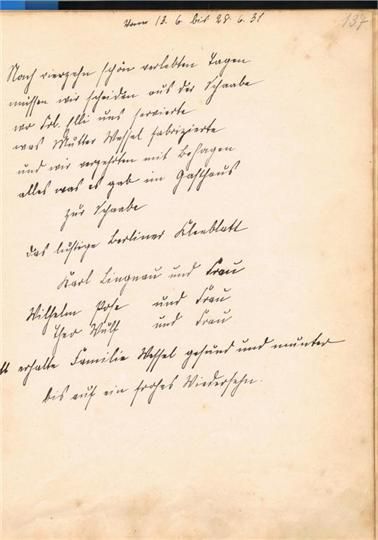 Vom 13.6. bis 28.6.31
137
Nach vierzehn schön verlebten Tagen
müssen wir scheiden aus der Schaabe
wo Frl. Elli uns servierte
was Mutter Wessel fabrizierte
und wir verzehrten mit Behagen
alles was es gab im Gasthaus
zur Schaabe
das lustige Berliner Kleeblatt
Karl Lingnau und Frau
Wilhelm Pose und Frau
Theo Wulf und Frau
erhalte Familie Wessel gesund und munter
bis auf ein frohes Wiedersehn.